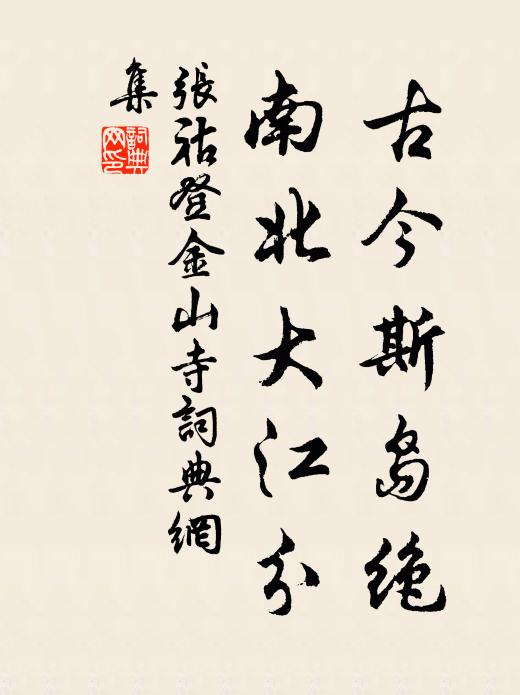 古今斯島絶
南北大江分
張祜登金山寺詞典網
集
詞典
网印